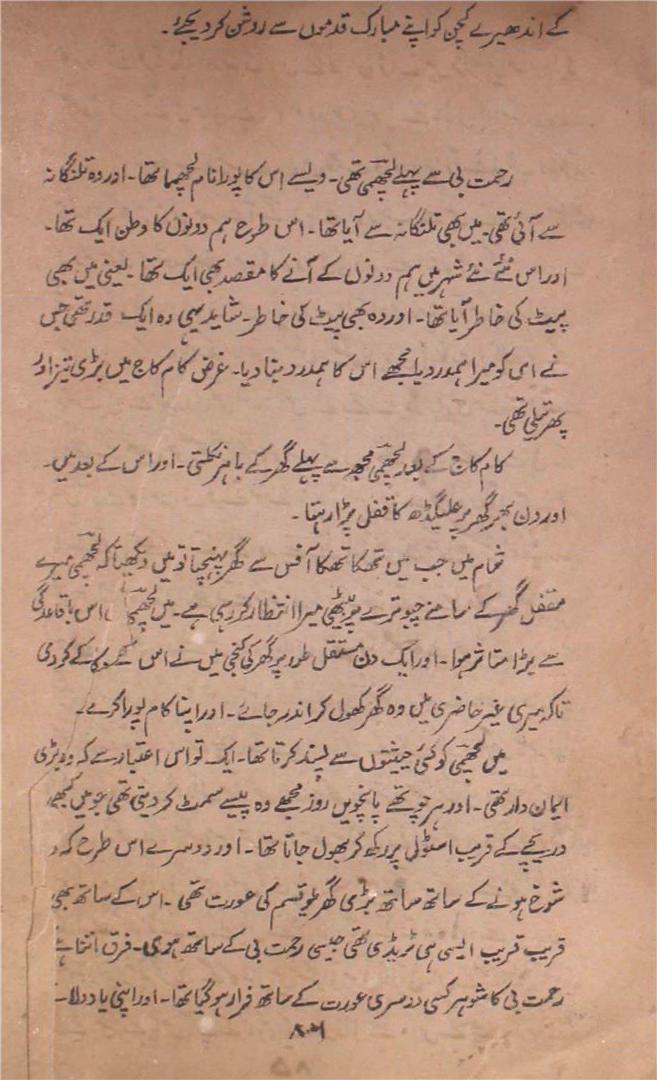 کے اندھیرے کچن کو اپنے مبارک قدموں سے روشن کر دیجئے ۔
رحمت بی سے پہلے لچھمی تھی ۔ ویسے اس کا پورا نام لچھما تھا ۔ اور وہ تلنگانہ
سے آئی تھی ۔ میں بھی تلنگانہ سے آیا تھا ۔ اس طرح ہم دونوں کا وطن ایک تھا ۔
اور اس نئے نئے شہر میں ہم دونوں کے آنے کا مقصد بھی ایک تھا ۔ یعنی میں بھی
پیٹ کی خاطر آیا تھا ۔ اور وہ بھی پیٹ کی خاطر ۔ شاید یہی وہ ایک قدر تھی جس
نے اس کو میرا ہمدرد یا مجھے اس کا ہمدرد بنا دیا ۔ غرض کام کاج میں بڑی تیز اور
پھرتیلی تھی ۔
کام کاج کے بعد لچھمی مجھ سے پہلے گھر کے باہر نکلتی ۔ اور اس کے بعد میں ۔
اور دن بھر گھر پر علیگڈھ کا قفل پڑا رہتا ۔
شام میں جب میں تھکا تھکا آفس سے گھر پہنچتا تو میں دیکھتا کہ لچھمی میرے
مقفل گھر کے سامنے چبوترے پر بیٹھی میرا انتظار کر رہی ہے ۔ میں لچھما اس باقاعدگی
سے بڑا متاثر ہوا ۔ اور ایک دن مستقل طور پر گھر کی کنجی میں نے اس کے کر دی
تاکہ میری غیر حاضری میں وہ گھر کھول کر اندر جائے ۔ اور اپنا کام پورا کرے ۔
میں لچھمی کو کئی حیثیتوں سے پسند کرتا تھا ۔ ایک تو اس اعتبار سے کہ وہ بڑی
ایمان دار تھی ۔ اور ہر چوتھے پانچویں روز مجھے وہ پیسے سمٹ کر دیتی تھی جو میں کبھی
دریچے کے قریب اسٹولی پر رکھ کر بھول جاتا تھا ۔ اور دوسرے اس طرح کہ و
شوخ ہونے کے ساتھ ساتھ بڑی گھریلو قسم کی عورت تھی ۔ اس کے ساتھ بھی
قریب قریب ایسی ہی ٹریجڈی تھی جیسی رحمت بی کے ساتھ ہوئی ۔ فرق اتنا ہے
رحمت بی کا شوہر کسی دوسری عورت کے ساتھ فرار ہو گیا تھا ۔ اور اپنی یاد دلا